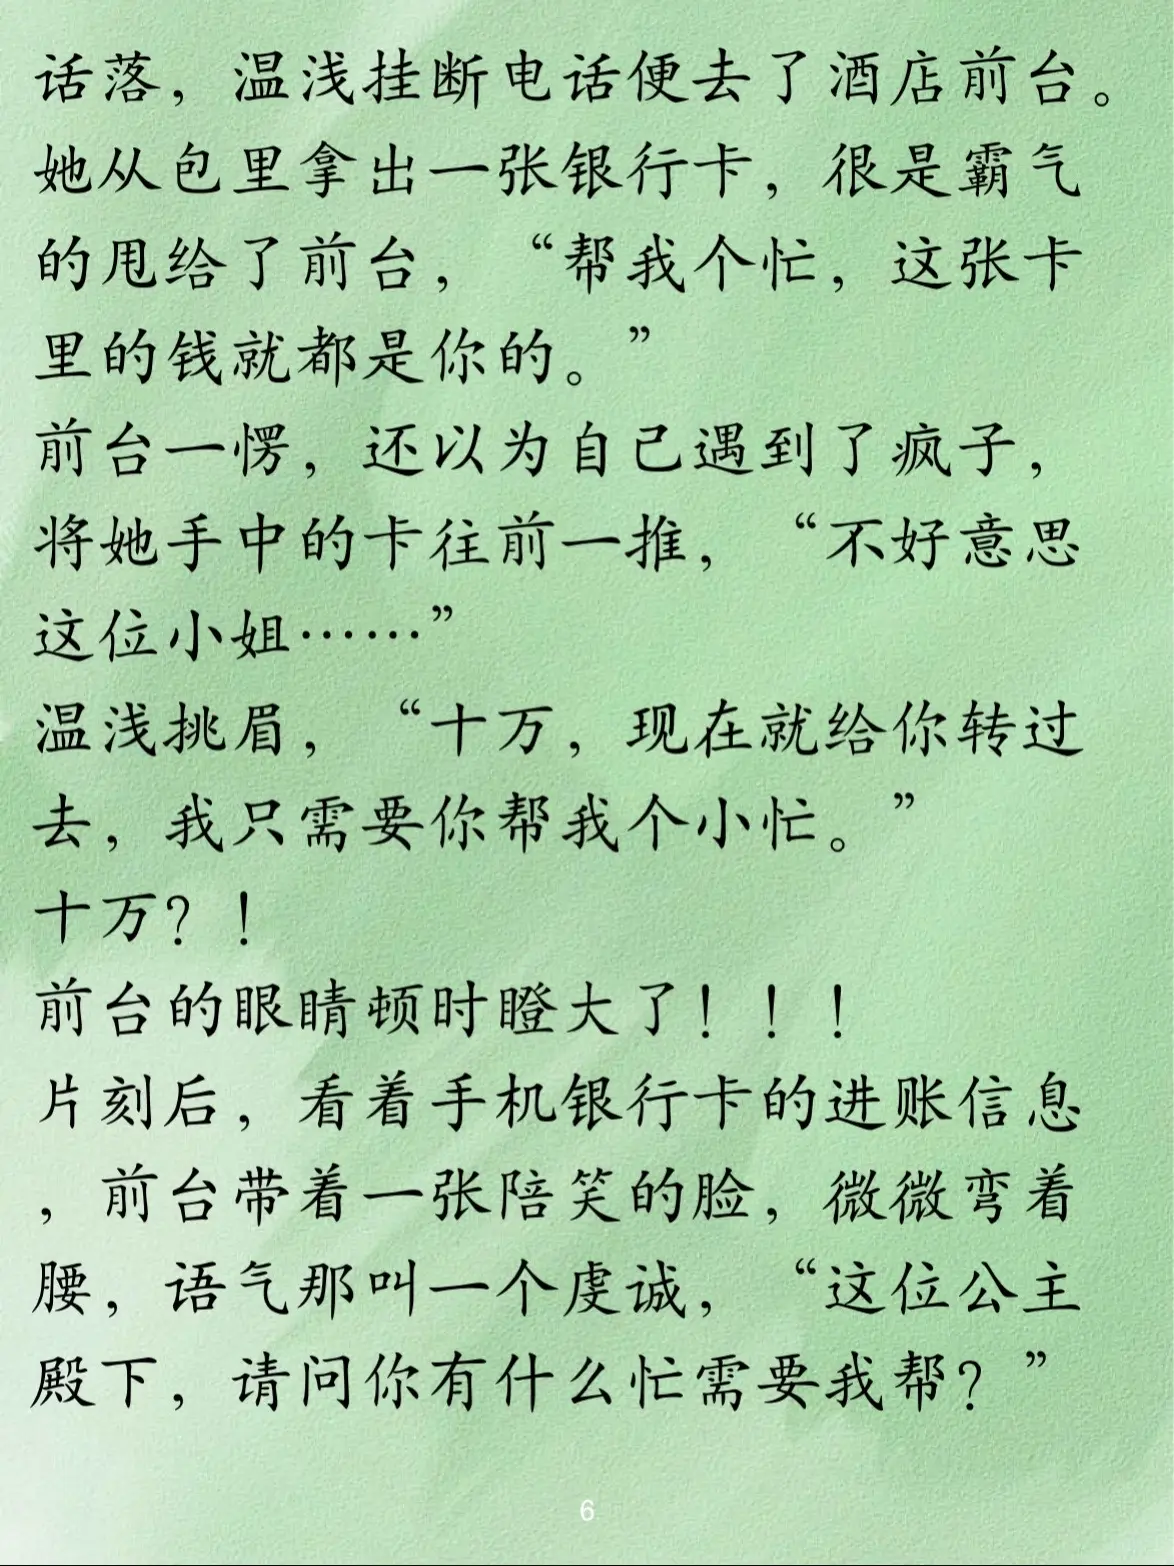 话落，温浅挂断电话便去了酒店前台。
她从包里拿出一张银行卡，很是霸气
的甩给了前台，“帮我个忙，这张卡
里的钱就都是你的。”
前台一愣，还以为自己遇到了疯子，
将她手中的卡往前一推，“不好意思
这位小姐……”
温浅挑眉，“十万，现在就给你转过
去，我只需要你帮我个小忙。”
十万？！
前台的眼睛顿时瞪大了！！！
片刻后，看着手机银行卡的进账信息
，前台带着一张陪笑的脸，微微弯着
腰，语气那叫一个虔诚，“这位公主
殿下，请问你有什么忙需要我帮？”
6